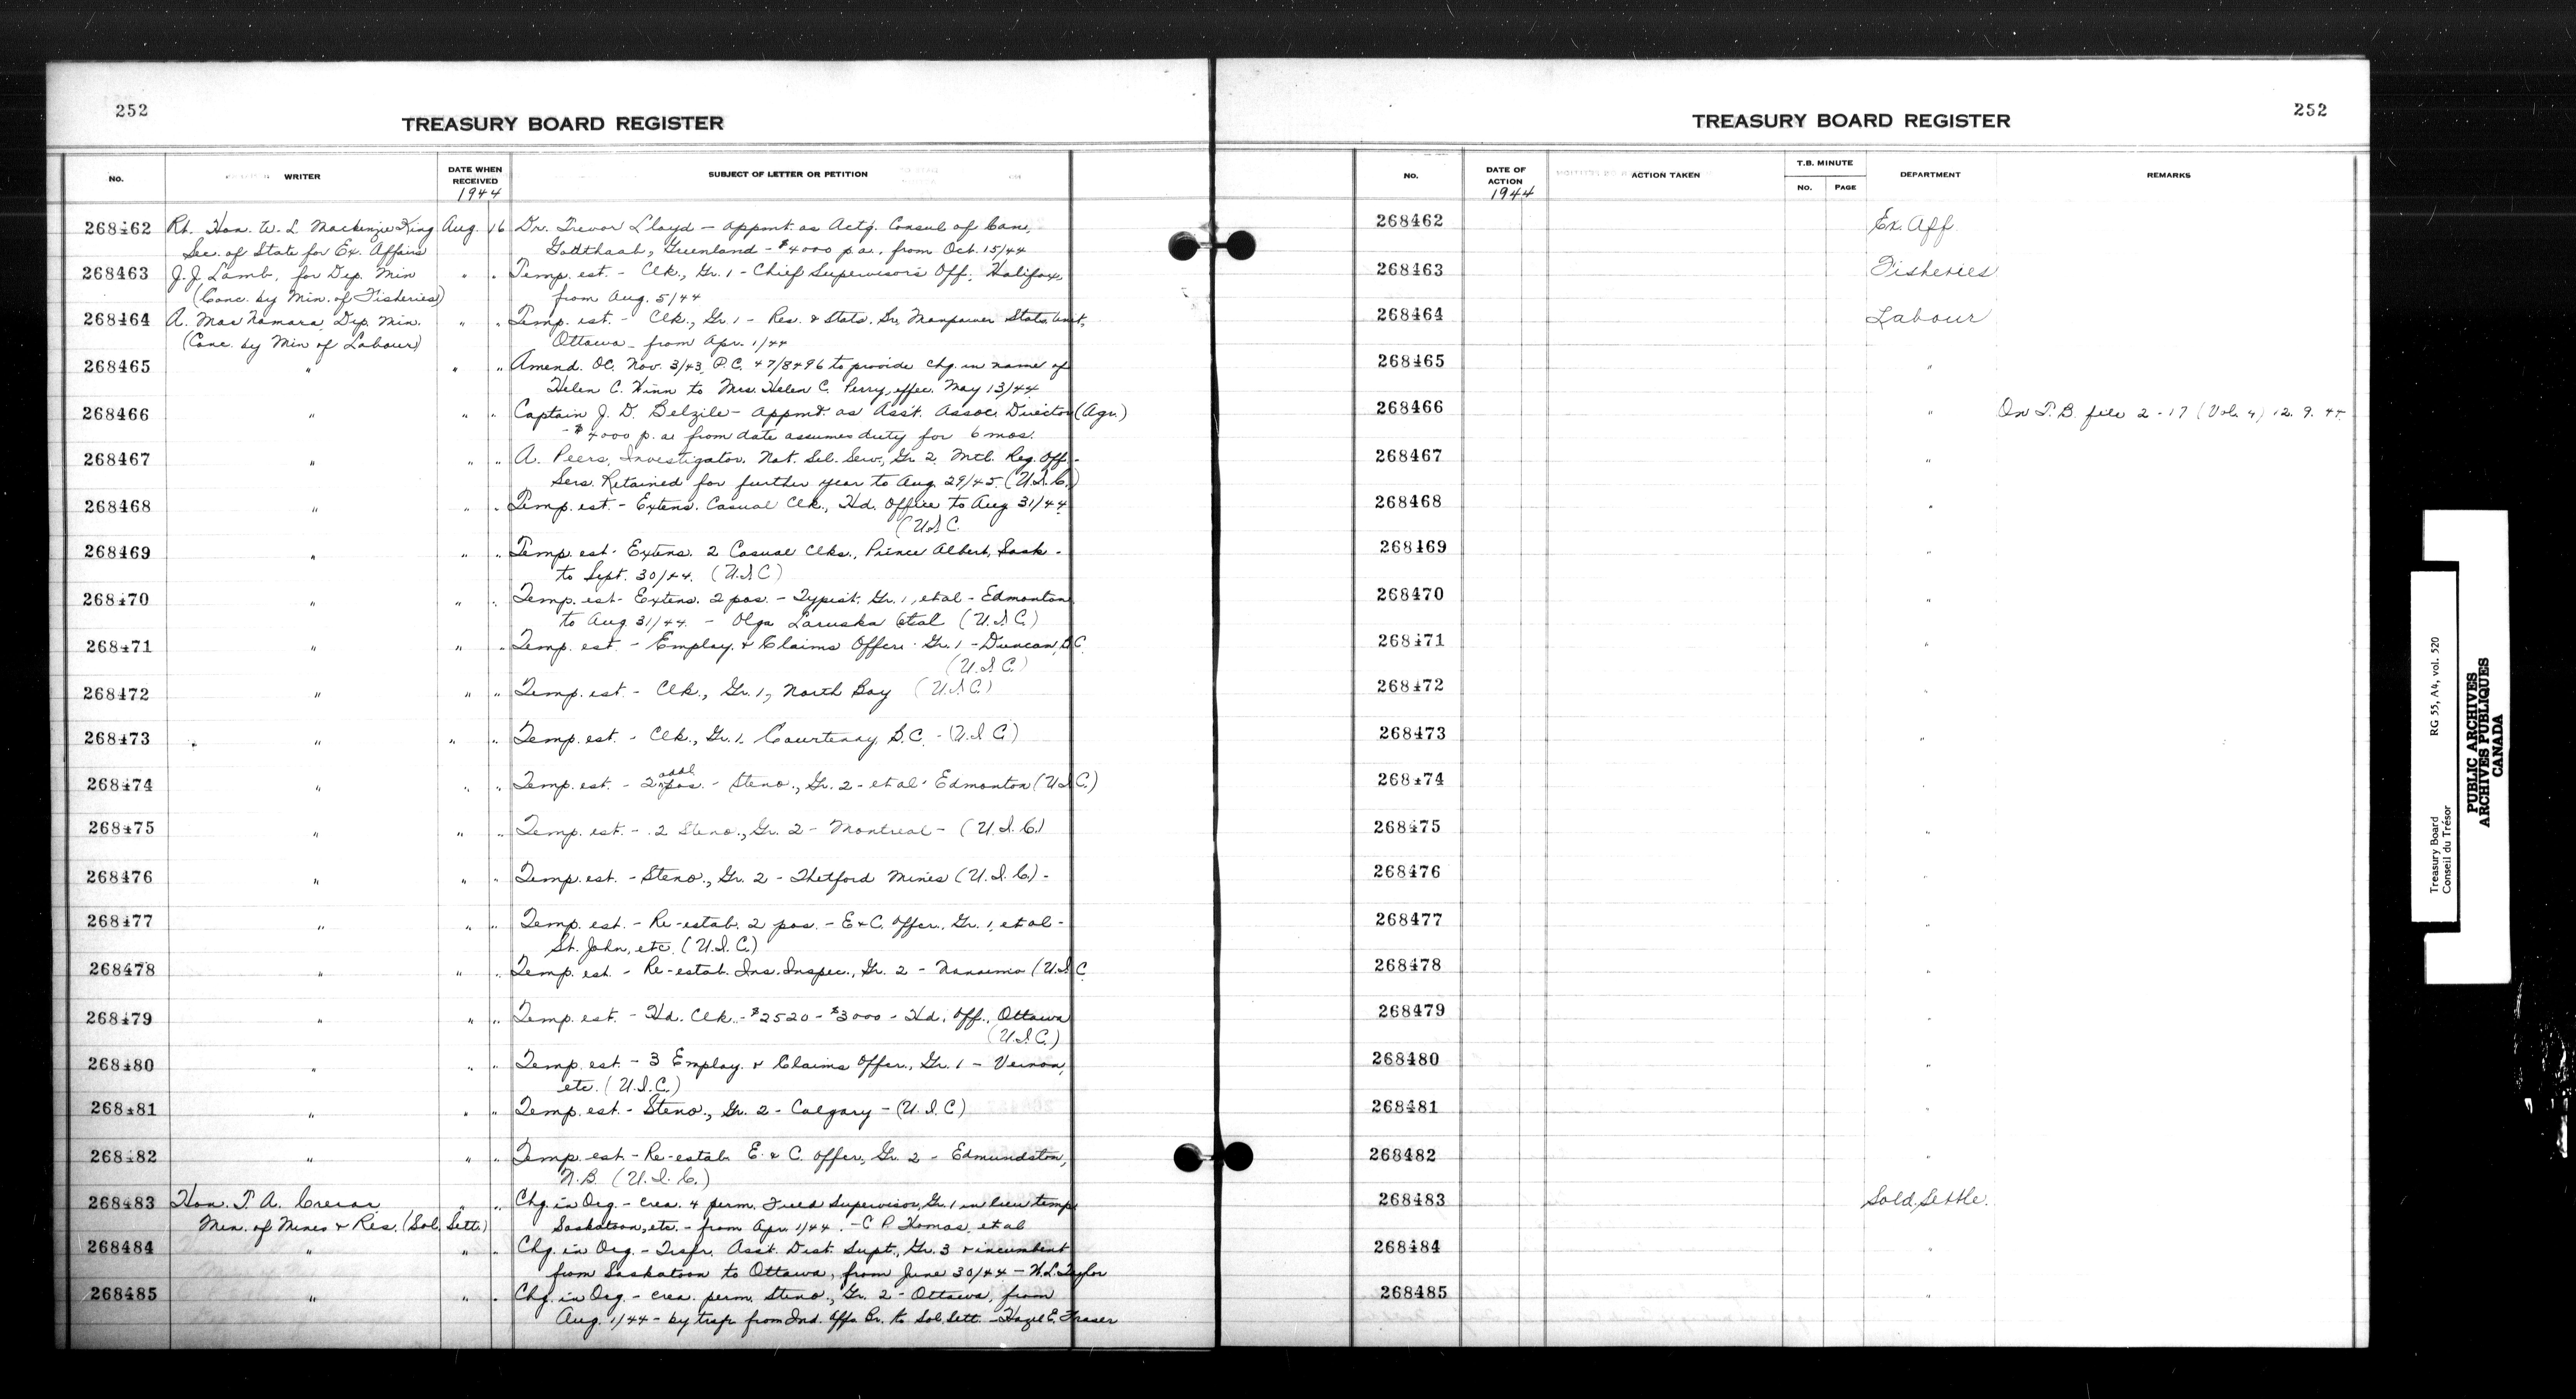 252
TREASURY BOARD REGISTER
No.
WRITER
DATE WHEN RECEIVED
1944
SUBJECT OF LETTER OR PETITION
268462 Rt. Hon. W. L Mackenzie King Aug. 16 Dr. Trevor Lloyd - appmt. as Actg. Consul of Can.,
Sec. of State for Ex. Affairs Godthaab, Greenland - $4000 p.a., from Oct. 15/44
268463 J. J. Lamb, for Dep. Min " " Temp. est. - Clk., Gr. 1 - Chief Supervisor's Off. Halifax,
(Conc. by Min. of Fisheries) from Aug. 5/44
268464 A. MacNamara, Dep. Min. " " Temp. est. - Clk., Gr. 1 - Res. & Stats. Br. Manpower Stats. Unit,
(Conc. by Min of Labour) Ottawa - from Apr. 1/44
268465 " " " Amend. OC. Nov. 3/43, P.C. 47/8496 to provide chg. in name of
Helen C. Winn to Mrs. Helen C. Perry, effec. May 13/44
268466 " " " Captain J. D. Belzile - appmt. as Ass't. Assoc. Director (Agr.)
- $4000 p.a. from date assumes duty for 6 mos.
268467 " " " A. Peers, Investigator, Nat. Sel. Serv., Gr. 2, Mtl. Reg. Off. -
Sers. Retained for further year to Aug. 29/45. (U.I.C.)
268468 " " " Temp. est. - Extens. Casual Clk., Hd. Office to Aug 31/44
(U.I.C.
268469 " " " Temp. est - Extens. 2 Casual Clks., Prince Albert, Sask -
to Sept. 30/44. (U.I.C)
268470 " " " Temp. est - Extens. 2 pos. - Typist, Gr. 1, et al - Edmonton
to Aug. 31/44. - Olga Laruska et al (U.I.C.)
268471 " " " Temp. est. - Employ. & Claims Offcr. Gr. 1 - Duncan, B.C.
(U.I.C.)
268472 " " " Temp. est. - Clk., Gr. 1, North Bay (U.I.C.)
268473 " " " Temp. est. - Clk., Gr. 1. Courtenay, B.C. - (U.I.C.)
268474 " " " Temp. est. - 2 addl pos. - Steno., Gr. 2 - et al - Edmonton (U.I.C.)
268475 " " " Temp. est. - 2 Steno., Gr. 2 - Montreal - (U.I.C.)
268476 " " " Temp. est. - Steno., Gr. 2 - Thetford Mines (U.I.C.) -
268477 " " " Temp. est. - Re-estab. 2 pos. - E & C. Offcr., Gr. 1, et al -
St. John, etc. (U.I.C.)
268478 " " " Temp. est. - Re-estab. Ins. Inspec., Gr. 2 - Nanaimo (U.I.C
268479 " " " Temp. est. - Hd. Clk. - $2520 - $3000 - Hd. Off., Ottawa
(U.I.C.)
268480 " " " Temp. est. - 3 Employ. & Claims Offcr., Gr. 1 - Vernon,
etc. (U.I.C.)
268481 " " " Temp. est - Steno., Gr. 2 - Calgary - (U.I.C)
268482 " " " Temp. est - Re-estab. E. & C. Offcr, Gr. 2 - Edmundston,
N.B. (U.I.C.)
268483 Hon. T. A. Crerar " " Chg. in Org. - crea. 4 perm. Field Supervisor, Gr. 1 in lieu temps
Min. of Mines & Res. (Sol. Sett.) Saskatoon, etc. - from Apr. 1/44. - C P. Thomas, et al
268484 " " " Chg. in Org. - Trsfr. Ass't. Dist. Supt., Gr. 3 & incumbent
from Saskatoon to Ottawa, from June 30/44 - W.L. Taylor
268485 " " " Chg. in Org. - crea. perm. Steno., Gr. 2 - Ottawa, from
Aug. 1/44 - by trsfr from Ind. Affs. Br. to Sol. Sett. - Hazel E. Fraser
252
TREASURY BOARD REGISTER
No.
DATE OF ACTION
1944
ACTION TAKEN
T.B. MINUTE
No.
PAGE
DEPARTMENT
REMARKS
268462 Ex. Aff
268463 Fisheries
268464 Labour
268465 "
268466 " On T.B. file 2-17 (Vol. 4) 12. 9. 44
268467 "
268468 "
268469 "
268470 "
268471 "
268472 "
268473 "
268474 "
268475 "
268476 "
268477 "
268478 "
268479 "
268480 "
268481 "
268482 "
268483 Sold. Settle.
268484 "
268485 "
Treasury Board RG 55, A4, vol. 520
Conseil du Trésor
PUBLIC ARCHIVES
ARCHIVES PUBLIQUES
CANADA